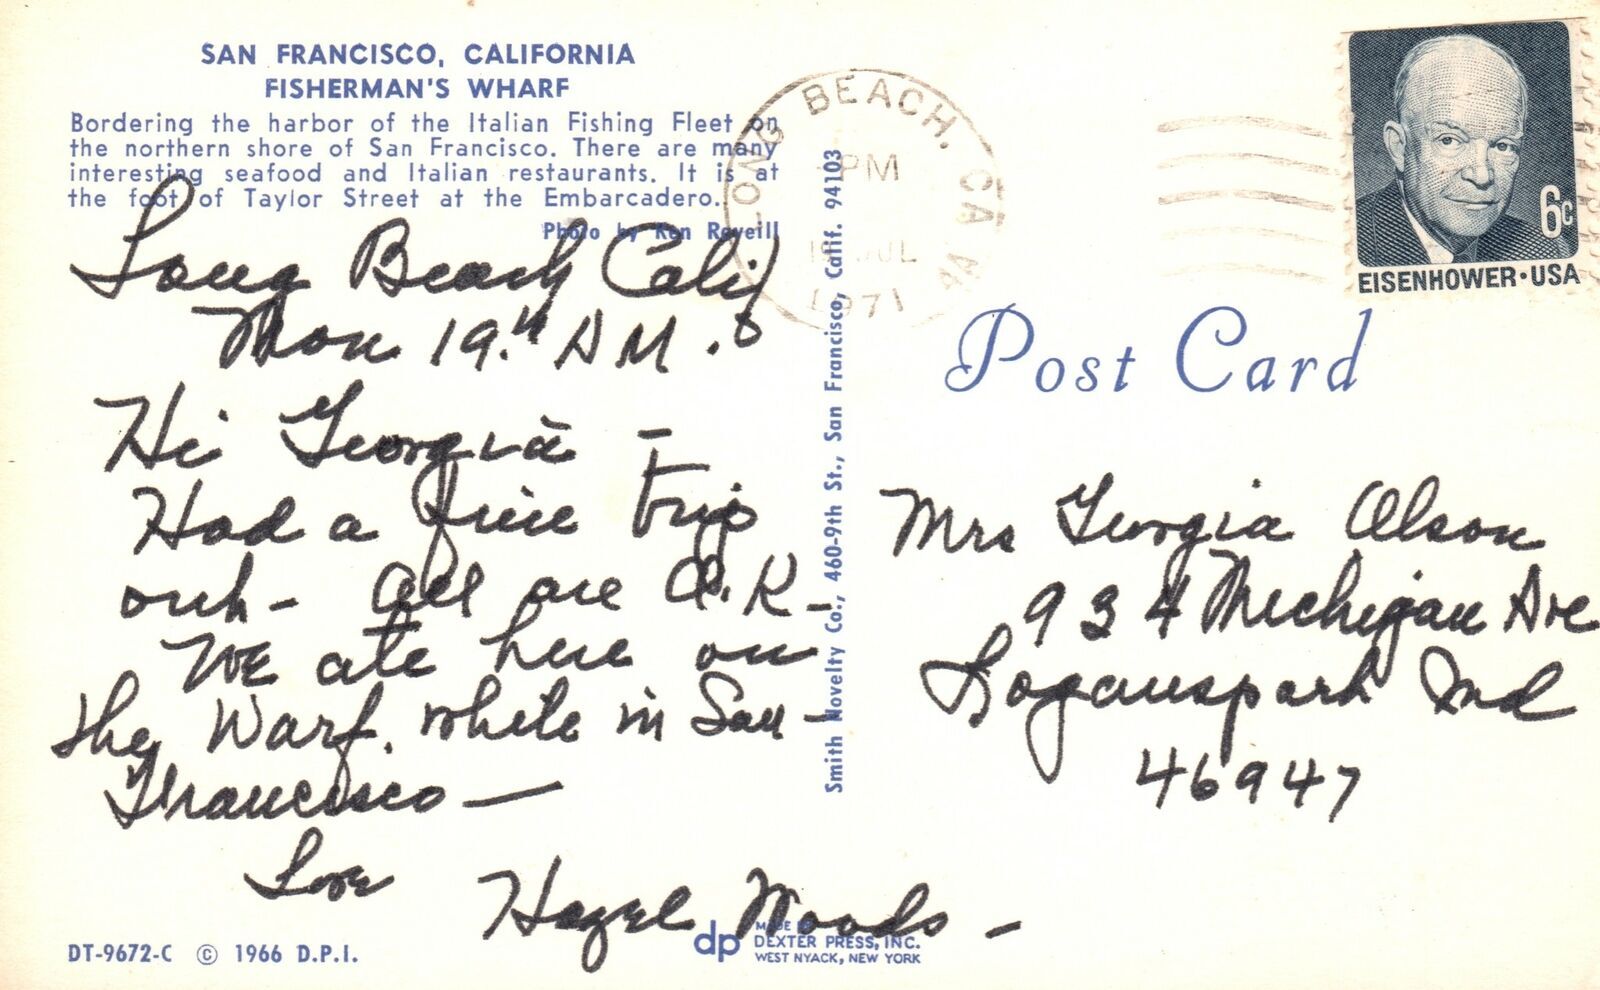 SAN FRANCISCO, CALIFORNIA
FISHERMAN'S WHARF
Bordering the harbor of the Italian Fishing Fleet on
the northern shore of San Francisco. There are many
interesting seafood and Italian restaurants. It is at
the foot of Taylor Street at the Embarcadero.
Photo by Ken Reveill
Long Beach Calif
Mon 19.th A M.
Hi Georgia -
Had a fine trip
out - All are O.K -
We ate here on
the Warf. while in San -
Francisco -
Love
Hazel Woods -
DT-9672-C © 1966 D.P.I.
dp
MADE BY
DEXTER PRESS, INC.
WEST NYACK, NEW YORK
Smith Novelty Co., 460-9th St., San Francisco, Calif. 94103
LONG BEACH, CA
PM
19 JUL
1971
6c
EISENHOWER·USA
Post Card
Mrs Georgia Olson
934 Michigan Ave
Logansport Ind
46947